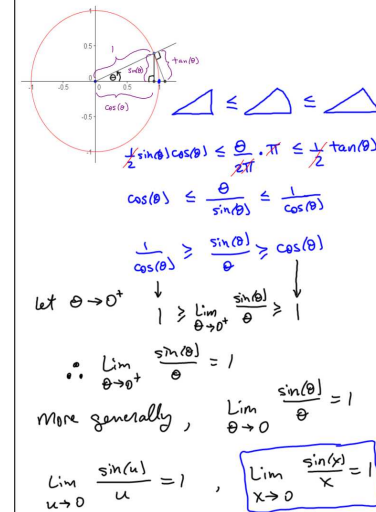 1
0.5
1 sin(θ) tan(θ)
θ
-1 -0.5 0 0.5 1
cos(θ)
-0.5
-1
≤ ≤
1/2 sin(θ) cos(θ) ≤ θ/2π · π ≤ 1/2 tan(θ)
cos(θ) ≤ θ/sin(θ) ≤ 1/cos(θ)
1/cos(θ) ≥ sin(θ)/θ ≥ cos(θ)
let θ → 0⁺ ↓ ↓
1 ≥ Lim θ→0⁺ sin(θ)/θ ≥ 1
∴ Lim θ→0⁺ sin(θ)/θ = 1
More generally, Lim θ→0 sin(θ)/θ = 1
Lim u→0 sin(u)/u = 1 , Lim x→0 sin(x)/x = 1